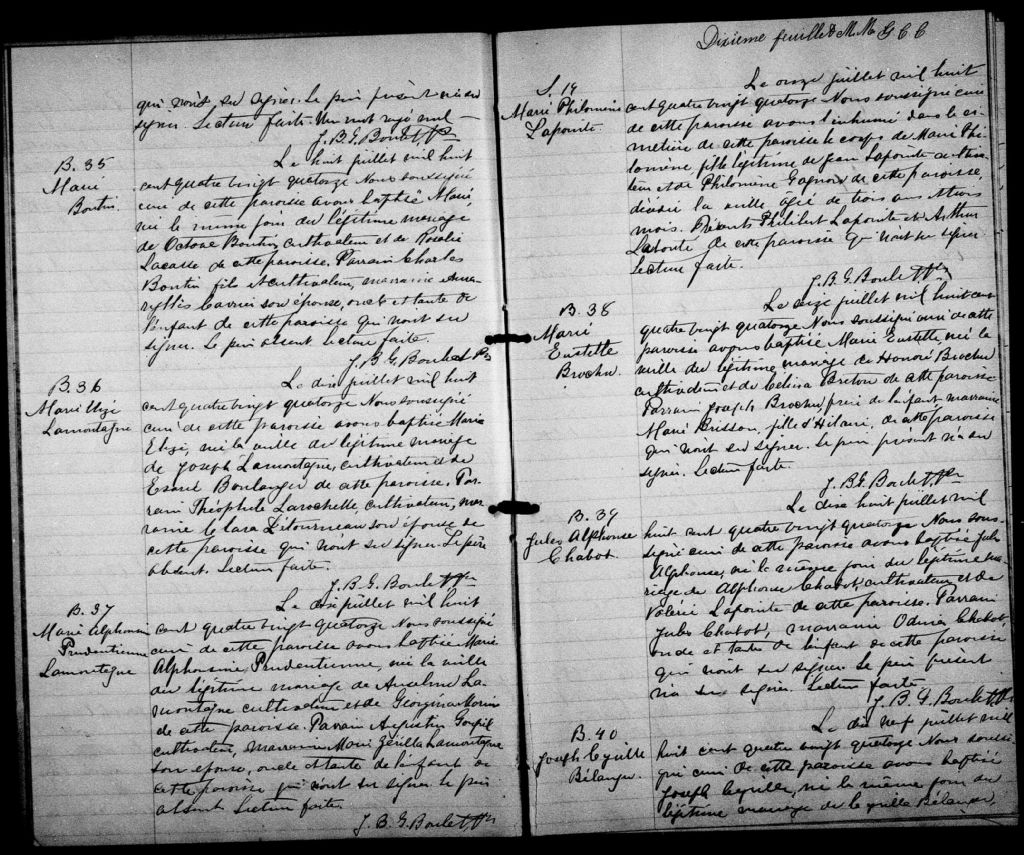 qui n'ont su signer. Le père présent n'a su
signer. Lecture faite. Un mot rayé nul
J. B. G. Boulet, Ptre
B. 35
Marie
Boutin.
Le huit juillet mil huit
cent quatre vingt quatorze Nous soussigné
curé de cette paroisse avons baptisé Marie,
née le même jour du légitime mariage
de Octave Boutin, cultivateur et de Rosalie
Lacasse de cette paroisse. Parrain Charles
Boutin fils cultivateur, marraine Ama-
ryllis son épouse, oncle et tante de
l'enfant de cette paroisse qui n'ont su
signer. Le père absent. Lecture faite.
J. B. G. Boulet Ptre
B. 36
Marie
Lamontagne
Le dix juillet mil huit
cent quatre vingt quatorze Nous soussigné
curé de cette paroisse avons baptisé Marie
née la veille du légitime mariage
de Joseph Lamontagne, cultivateur et de
Boulanger de cette paroisse. Par-
rain Théophile Larochelle, cultivateur, mar-
raine Létourneau son épouse de
cette paroisse qui n'ont su signer. Le père
absent. Lecture faite.
J. B. G. Boulet Ptre
B. 37
Marie Alphonsine
Prudentienne
Lamontagne
Le dix juillet mil huit
cent quatre vingt quatorze Nous soussigné
curé de cette paroisse avons baptisé Marie
Alphonsine Prudentienne, née la veille
du légitime mariage de Anselme La-
montagne cultivateur et de Georgina Morin
de cette paroisse. Parrain Augustin Goupil
cultivateur, marraine Marie Lamontagne
son épouse, oncle et tante de l'enfant de
cette paroisse qui n'ont su signer. Le père
absent. Lecture faite.
J. B. G. Boulet Ptre
Dixième feuillet M. M. G. C. C
S. 14
Marie Philomène
Lapointe.
Le onze juillet mil huit
cent quatre vingt quatorze Nous soussigné curé
de cette paroisse avons inhumé dans le ci-
metière de cette paroisse le corps de Marie Phi-
lomène fille légitime de Jean Lapointe cultiva-
teur et de Philomène Gagnon de cette paroisse,
décédée la veille agée de trois ans
mois. Présents Philibert Lapointe et Arthur
Lapointe de cette paroisse qui n'ont su signer
Lecture faite.
J. B. G. Boulet Ptre
B. 38
Marie
Eustelle
Brochu.
Le seize juillet mil huit cent
quatre vingt quatorze Nous soussigné curé de cette
paroisse avons baptisé Marie Eustelle née la
veille du légitime mariage de Honoré Brochu
cultivateur et de Célina Breton de cette paroisse
Parrain Joseph Brochu, frère de l'enfant marraine
Marie Brisson, fille d'Hilaire, de cette paroisse
qui n'ont su signer. Le père présent n'a su
signer. Lecture faite.
J. B. G. Boulet, Ptre
B. 39
Jules Alphonse
Chabot.
Le dix huit juillet mil
huit cent quatre vingt quatorze Nous sous-
signé curé de cette paroisse avons baptisé Jules
Alphonse, né le même jour du légitime ma-
riage de Alphonse Chabot, cultivateur et de
Valérie Lapointe de cette paroisse. Parrain
Jules Chabot, marraine Chabot,
oncle et tante de l'enfant de cette paroisse
qui n'ont su signer. Le père présent
n'a su signer. Lecture faite.
J. B. G. Boulet Ptre
B. 40
Joseph Cyrille
Bélanger
Le dix neuf juillet mil
huit cent quatre vingt quatorze Nous soussi-
gné curé de cette paroisse avons baptisé
Joseph Cyrille, né le même jour du
légitime mariage de Cyrille Bélanger,